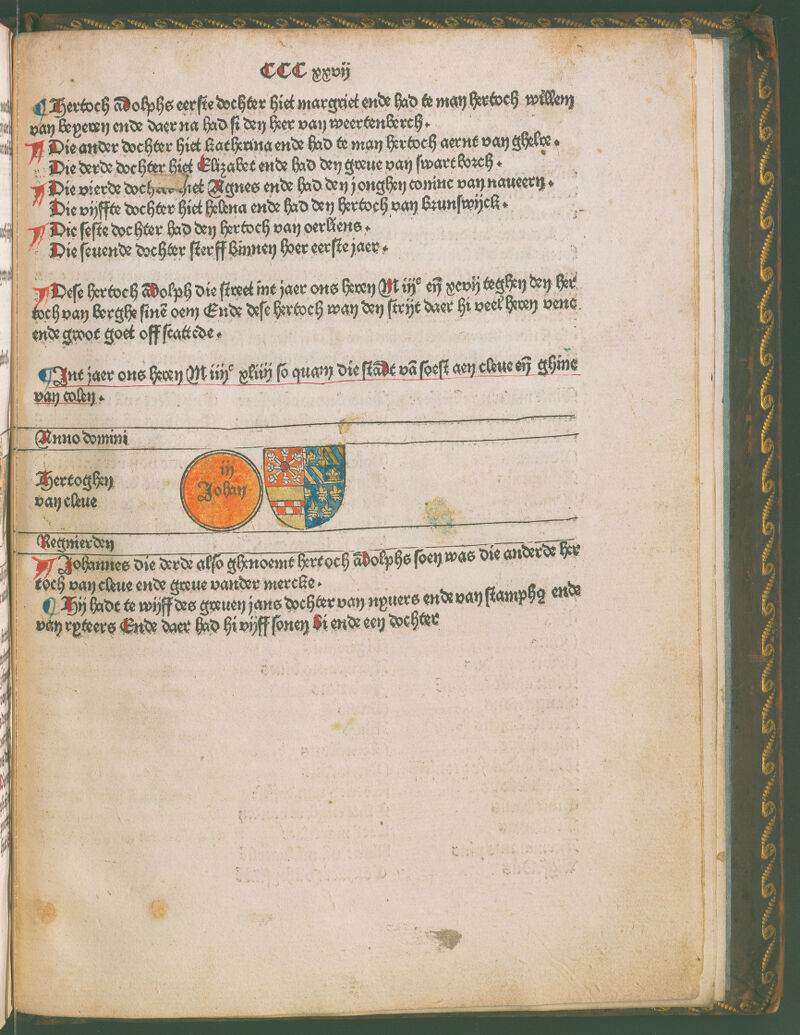 CCC xxvij
¶ Hertoch adolphs eerste dochter hiet margriet ende had te man hertoch willem
van beyeren ende daer na had si den heer van weertenberch.
Die ander dochter hiet katherina ende had te man hertoch aernt van ghelre.
Die derde dochter hiet Elizabet ende had den greue van swartborch.
Die vierde dochter hiet Agnes ende had den jonghen coninc van naueern.
Die vijffte dochter hiet helena ende had den hertoch van brunswijck.
Die seste dochter had den hertoch van oerliens.
Die seuende dochter sterff binnen hoer eerste jaer.
Dese hertoch adolph die street int jaer ons heren M iijᶜ eñ xcvij teghen den her
toch van berghe sinē oem Ende dese hertoch wan den strijt daer hi veel heren venc
ende groot goet off scattede.
¶ Int jaer ons heren M iiijᶜ xliiij so quam die stadt vā soest aen cleue eñ ghinc
van colen.
Anno domini
Hertoghen
van cleue
iij
Johan
Regnierden
Johannes die derde also ghenoemt hertoch adolphs soen was die anderde her
toch van cleue ende greue vander mercke.
¶ Hij hadt te wijff des greuen jans dochter van nyuers ende van stamphꝫ ende
van ryteers Ende daer had hi vijff sonen bi ende een dochter